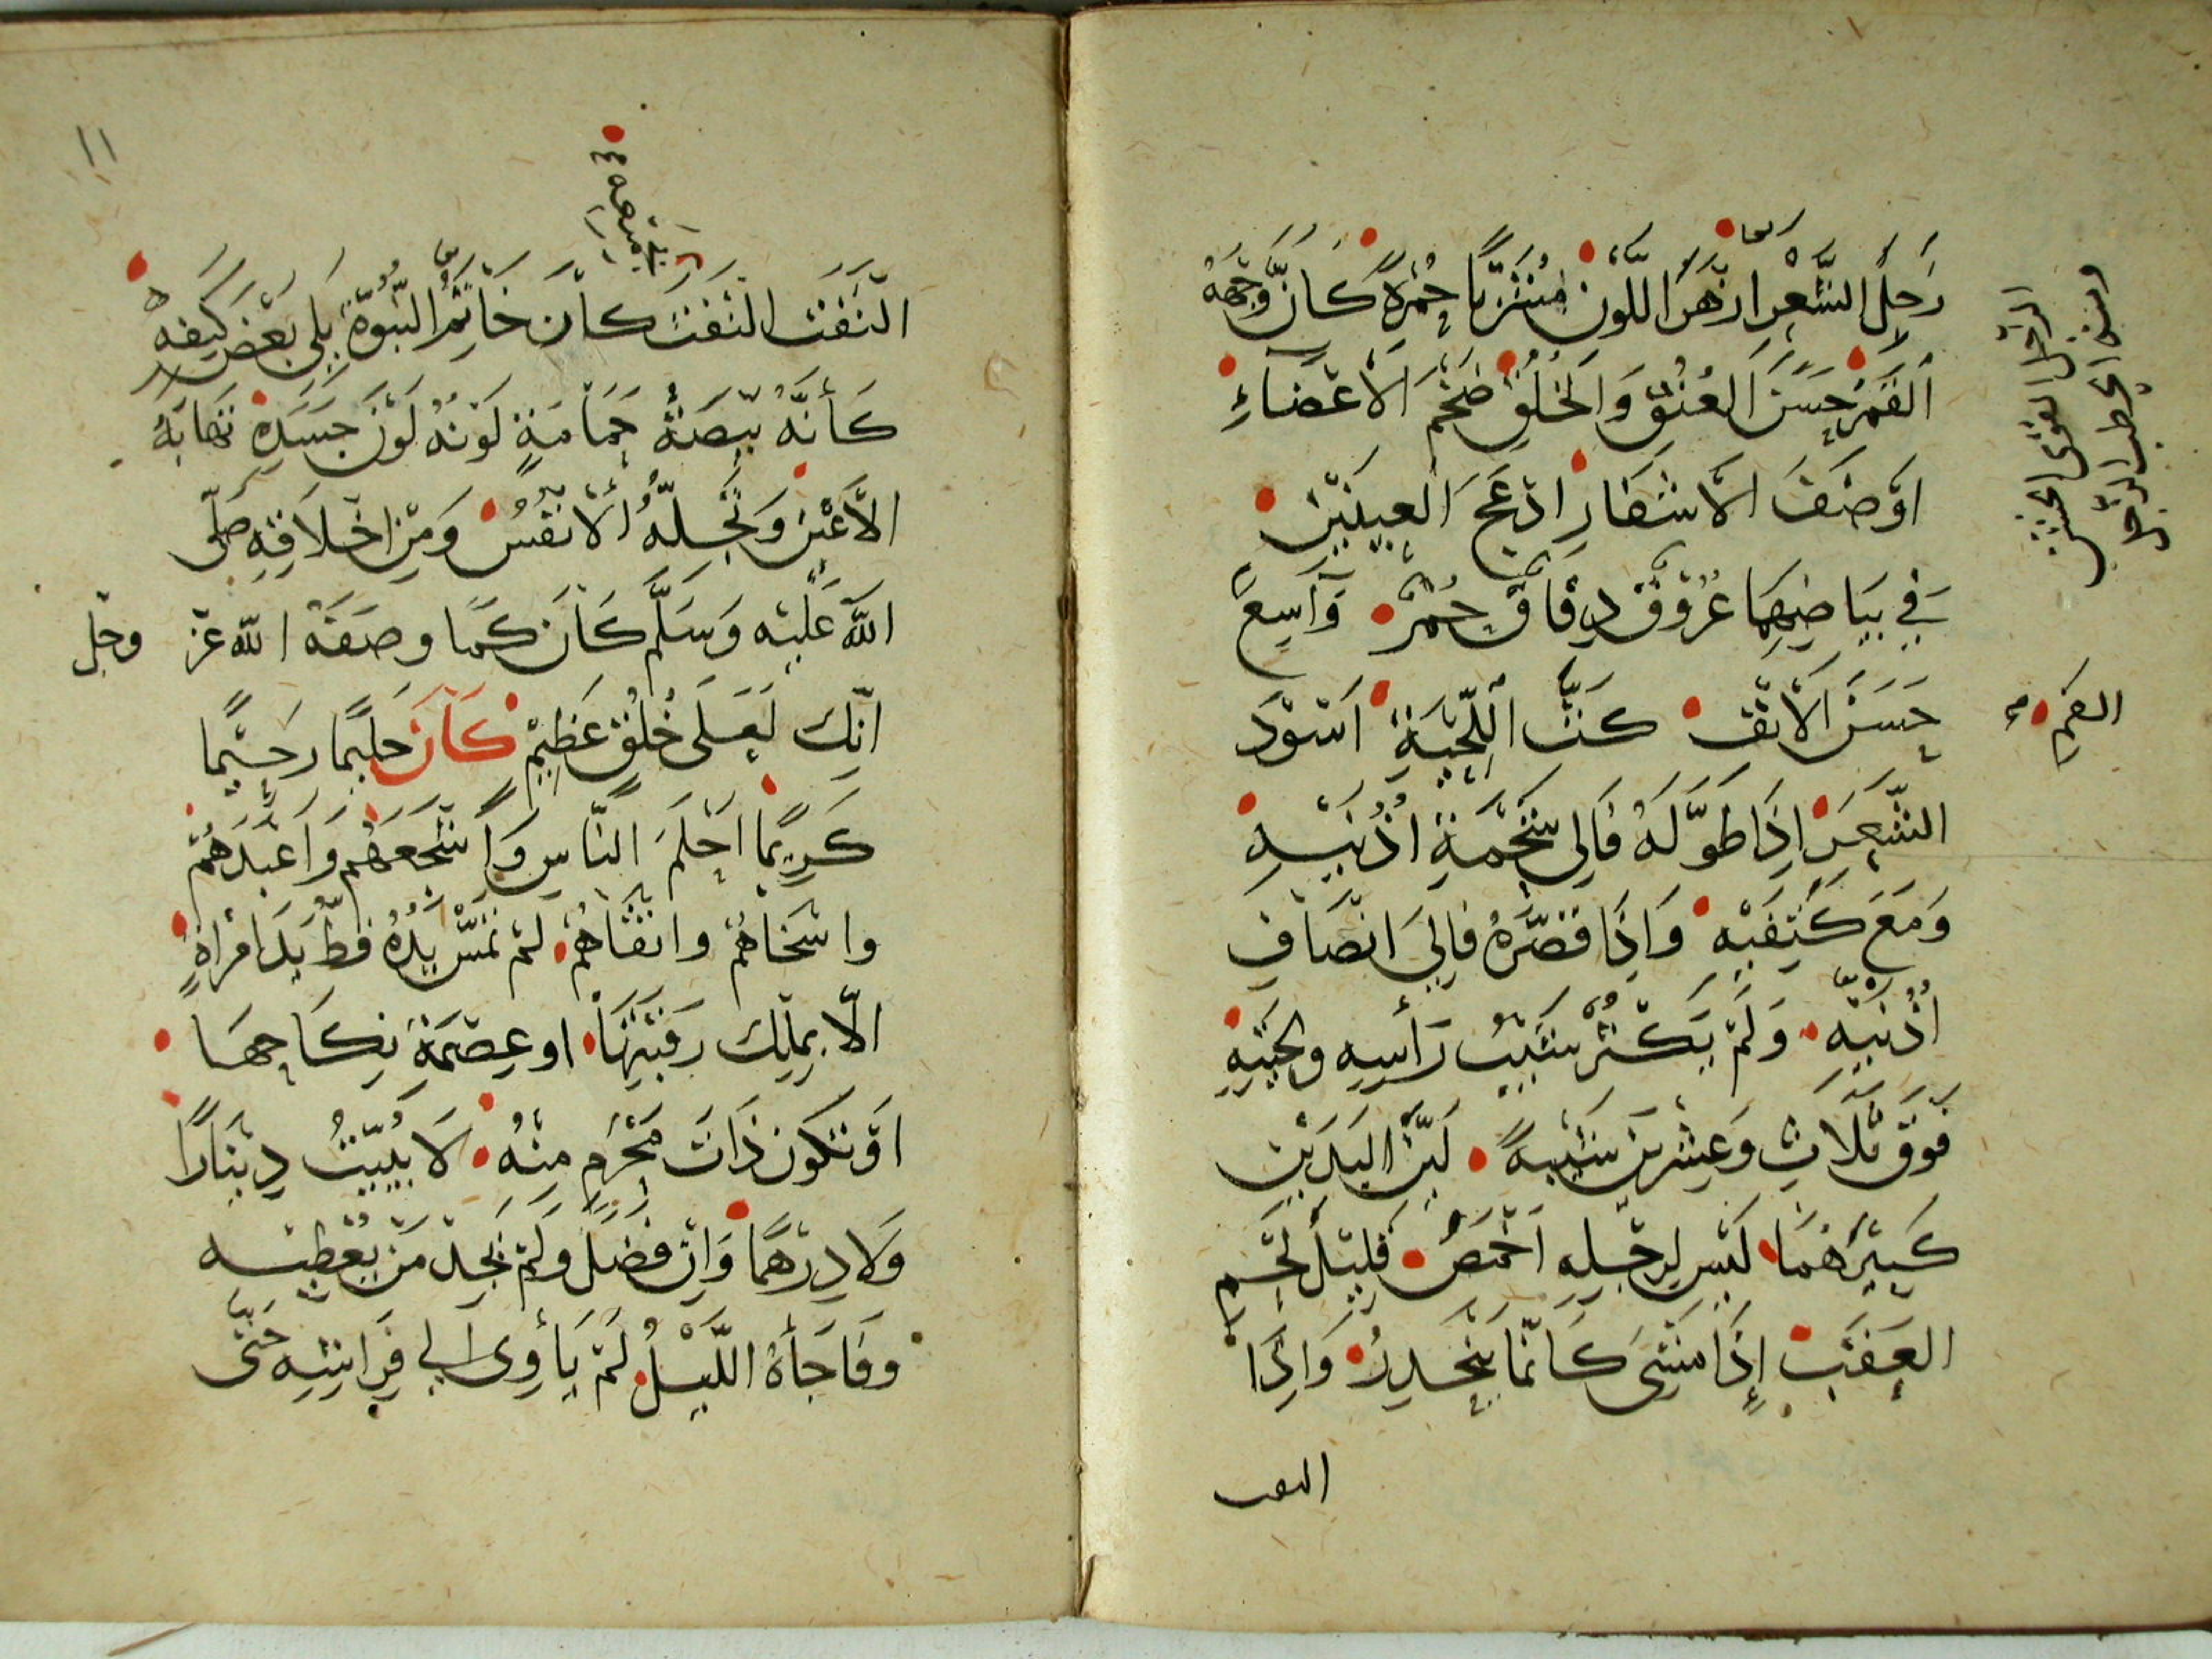 رَجِلُ الشَّعْرِ ازْهَرُ اللَّوْنِ مُشْرَبًا حُمْرَةً كَانَ وَجْهُهُ
القَمَرُ حَسَنَ العُنُقِ وَالخُلُقِ ضَخْمَ الاَعْضَاءِ
اوْصَفَ الاَشْفَارِ ادْعَجَ العَيْنَيْنِ
فِي بَيَاضِهِمَا عُرُوقٌ دِقَاقٌ حُمْرٌ وَاسِعَ
الفم
حَسَنَ الاَنْفِ كَثَّ اللِّحْيَةِ اسْوَدَ
الشَّعَرِ اِذَا طَوَّلَهُ فَاِلى شَحْمَةِ اذُنَيْهِ
وَمَعَ كَتِفَيْهِ وَاِذَا قَصَّرَهُ فَاِلَى انْصَافِ
اُذُنَيْهِ وَلَمْ يَكْثُرْ شَيْبُ رَأْسِهِ ولِحْيَتِهِ
فَوْقَ ثَلَاثٍ وَعِشْرِينَ شَيْبَةً لَيِّنَ اليَدَيْنِ
كَبِيْرَهُمَا لَيْسَ لِرِجْلِهِ اَخْمَصٌ قَلِيْلَ لَحْمِ
العَقِبِ إِذَا مَشَى كَانَّمَا يَنْحَدِرُ وَاِذَا
التفت
١١
الْتَفَتَ الْتَفَتَ كَانَ خَاتِمُ النُّبُوَّةِ يَلِى بَعْضَ كَتِفِهِ
كَأَنَّهُ بَيْضَةُ حَمَامَةٍ لَوْنُهُ لَوْنُ جَسَدِهِ تَهَابُهُ
الاَعْيُنُ وَتُجِلُّهُ الاَنْفُسُ وَمِنْ اخْلَاقِهِ صَلَّى
اللهُ عَلَيْهِ وَسَلَّمَ كَانَ كَمَا وصَفَهُ الله عَزّ وجَلّ
انَّكَ لَعَلَى خُلُقٍ عَظِيْمٍ كَانَ حَلِيْمًا رَحِيْمًا
كَرِيمًا احْلَمَ النَّاسِ وَاَشْجَعَهُم وَاَعْبَدَهُمْ
واسْخَاهُمْ واتْقَاهُمْ لَمْ تَمَسَّ يَدُهُ قَطُّ يَدَ امْرَاةٍ
الَّا بِمِلْكِ رَقَبَتِهَا او عِصْمَةِ نِكَاحِهَا
اَوْ تَكُون ذَاتَ مَحْرَمٍ مِنْهُ لَا يُبَيِّتُ دِيْنَارًا
وَلَا دِرْهَمًا وَاِنْ فَضَلَ وَلَمْ يَجِدْ مَنْ يُعْطِيْهِ
وفَاجَأَهُ اللَّيْلُ لَمْ يَأْوِى اِلى فِرَاشِهِ حَتَّى